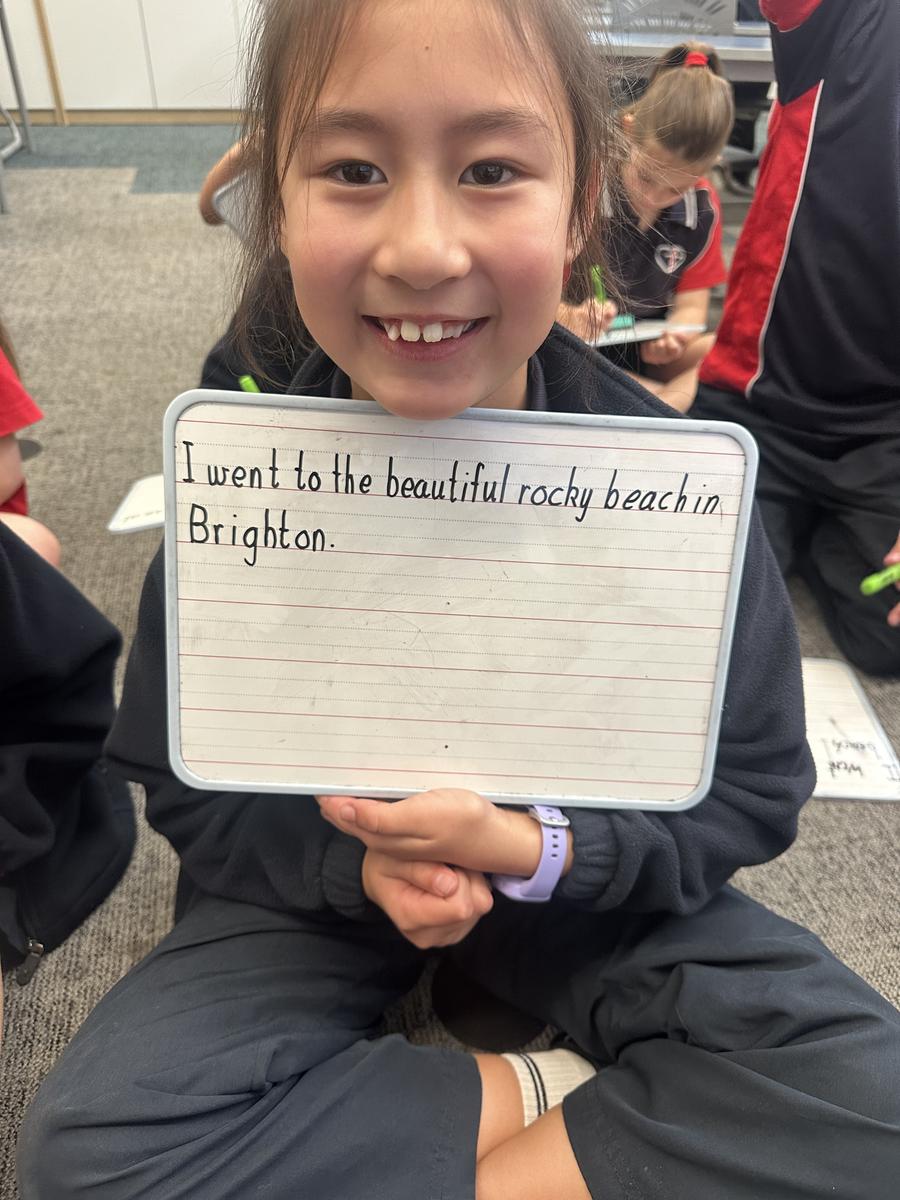 I went to the beautiful rocky beach in
Brighton.
I
went
beach